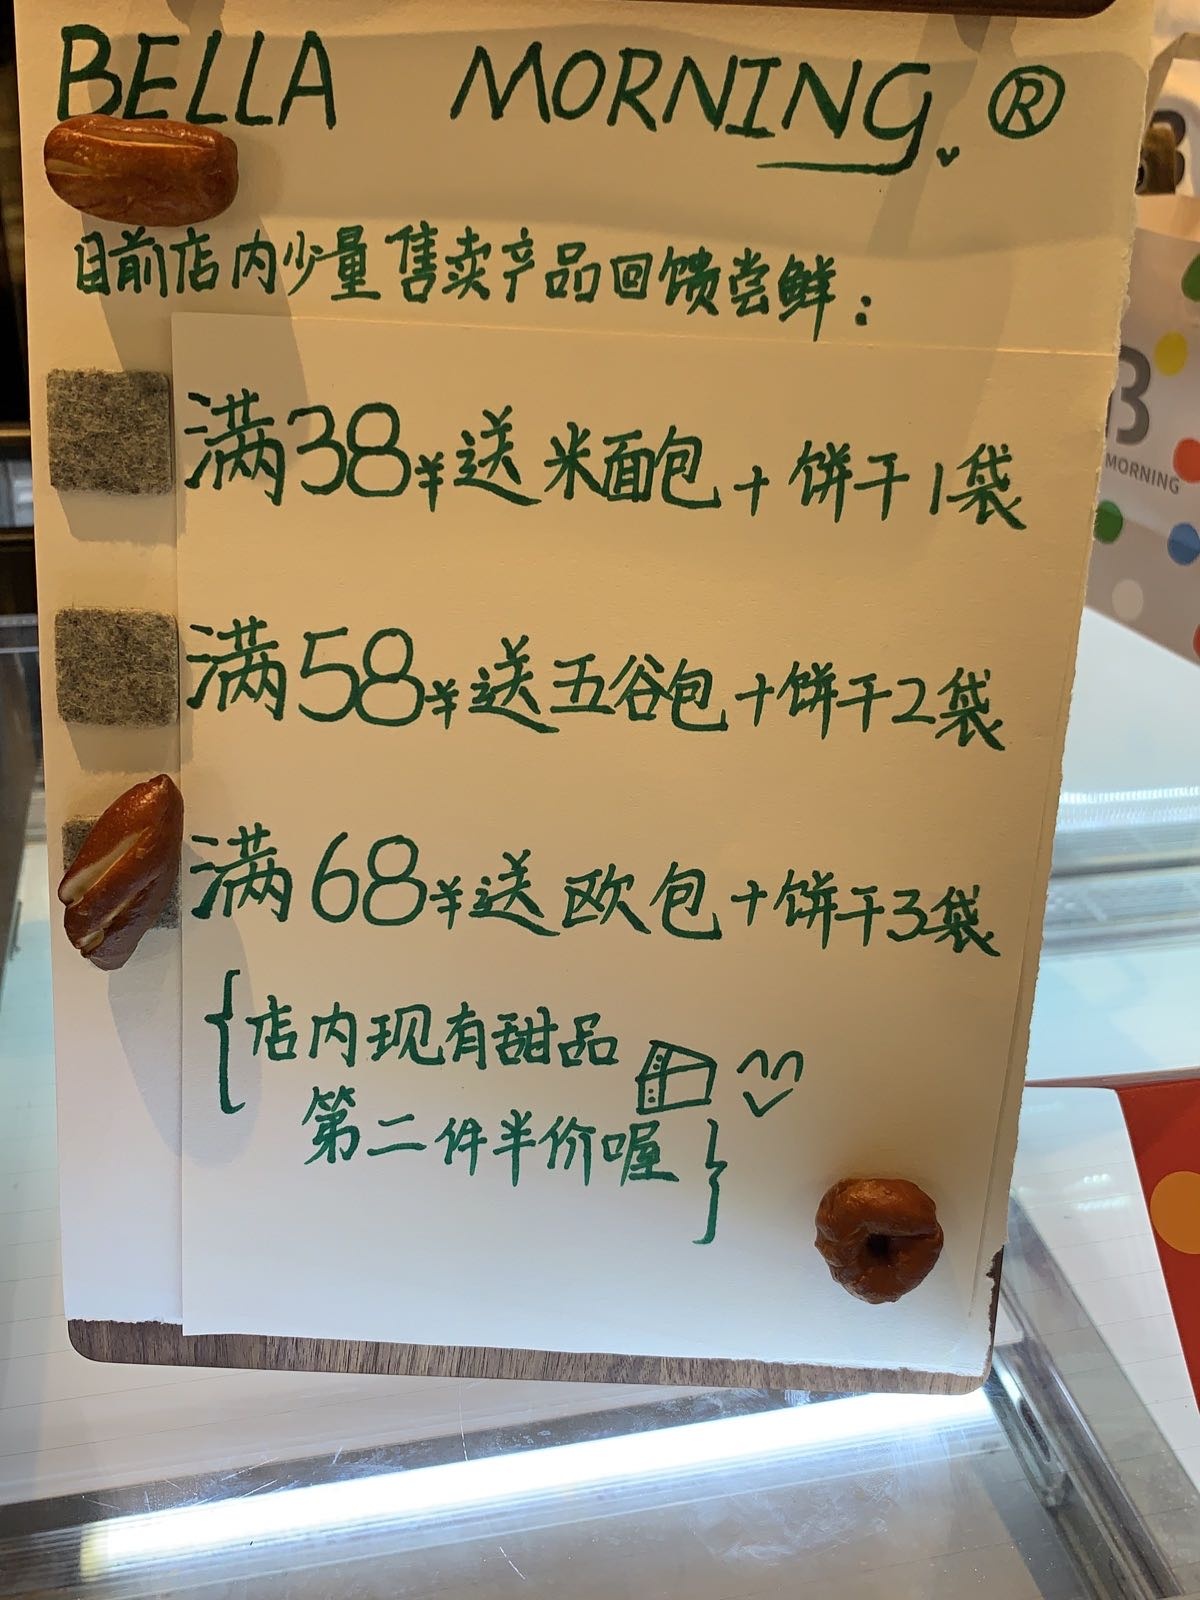 BELLA MORNING. ®
目前店内少量售卖产品回馈尝鲜:
满38¥送米面包+饼干1袋
满58¥送五谷包+饼干2袋
满68¥送欧包+饼干3袋
{店内现有甜品
第二件半价喔}
B
MORNING